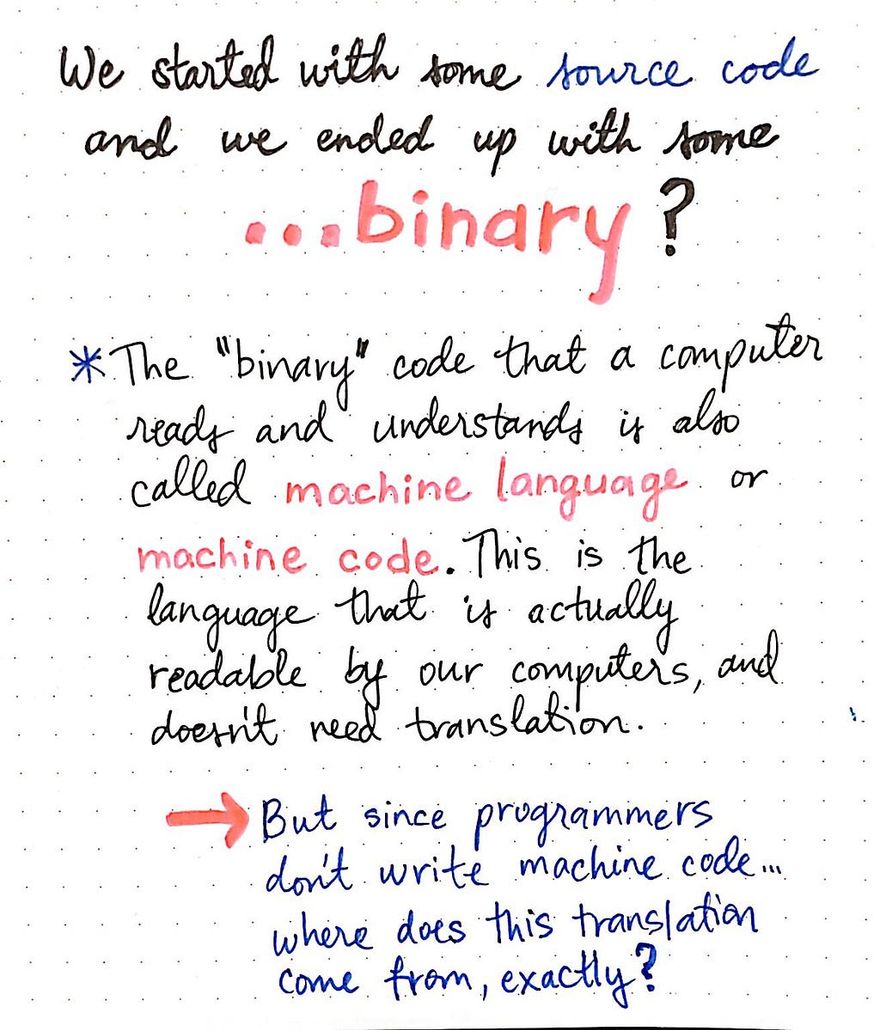 We started with some source code
and we ended up with some
...binary?
* The "binary" code that a computer
reads and understands is also
called machine language or
machine code. This is the
language that is actually
readable by our computers, and
doesn't need translation.
→ But since programmers
don't write machine code...
where does this translation
come from, exactly?